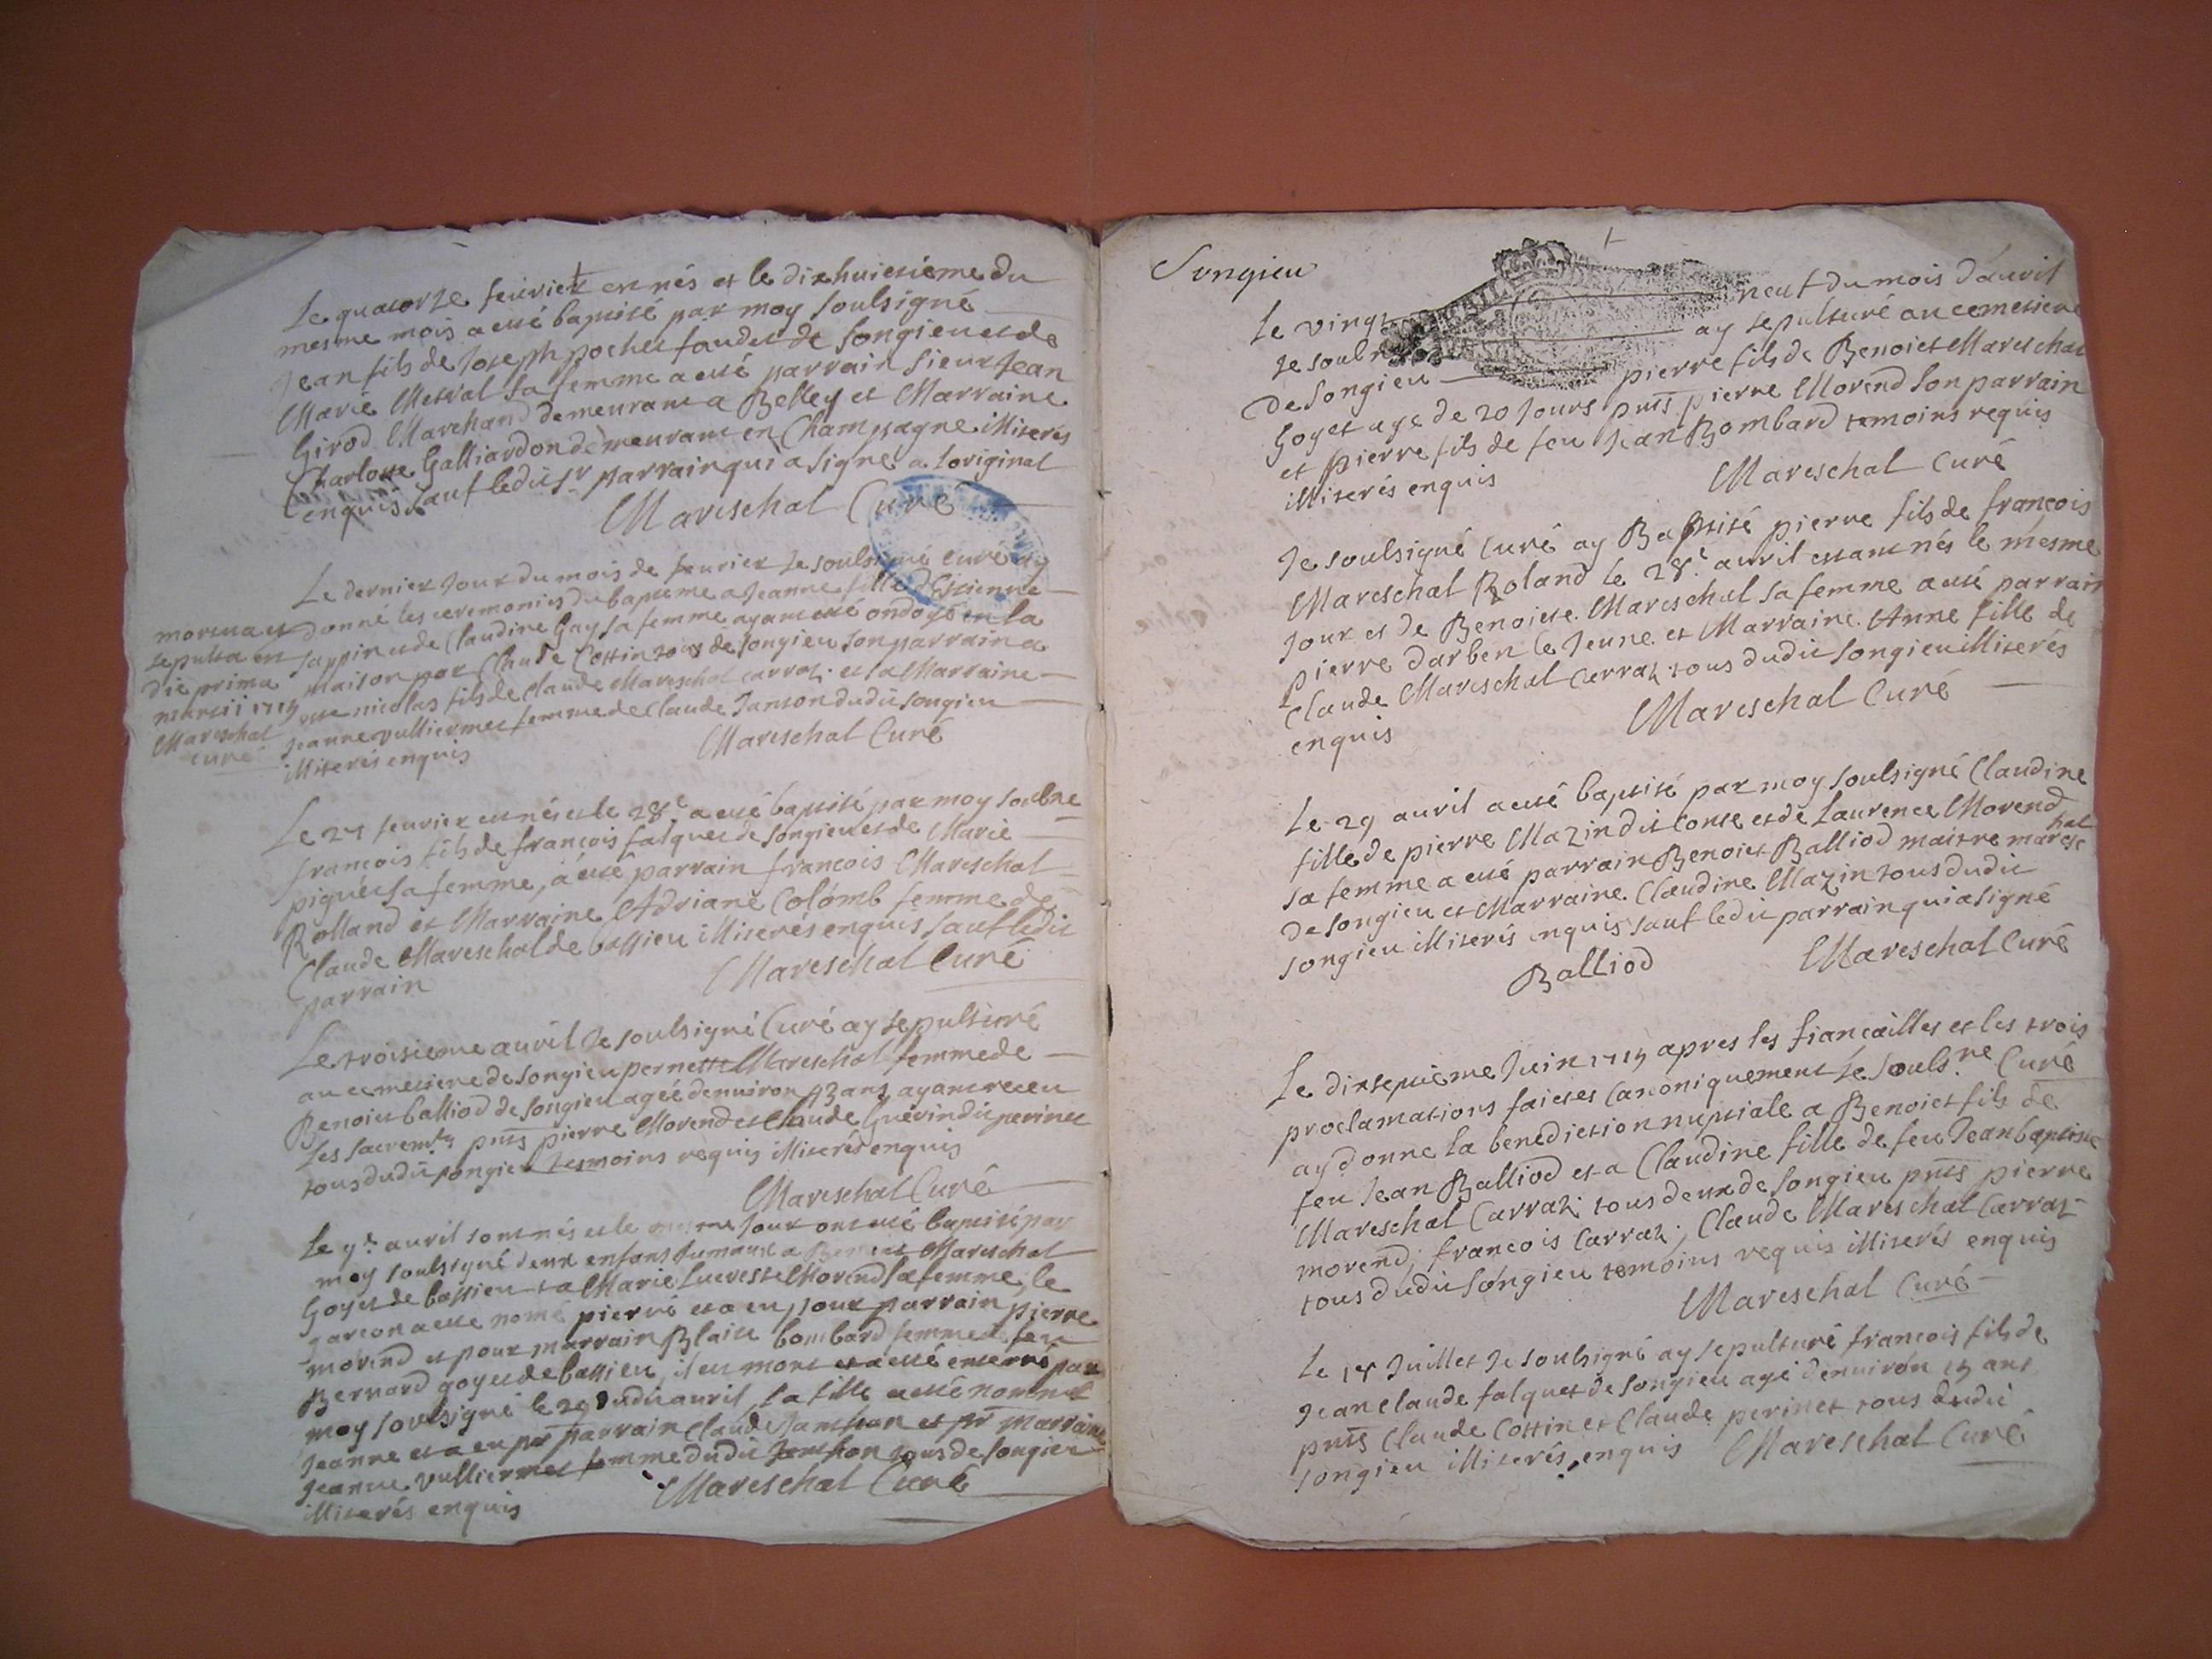 Le quatorze feuvrier est nés et le dixhuictieme du
mesme mois a esté baptisé par moy soulsigné
Jean fils de Joseph pochet faudet de Songieu et de
Marie Mestral sa femme a esté parrain sieur Jean
Girod Marchand demeurant a Belley et Marraine
Charlotte Galliardon demeurant en Champagne illiterés
enquis sauf ledit Sr parrain qui a signe a loriginal
Mareschal Curé
Le dernier Jour du mois de feuvrier Je soulsigné curé ay
donné les ceremonies du baptême a Jeanne fille d'Estienne
sappin et de Claudine Gay sa femme ayant esté ondoyé en la
maison par Claude Cottin tous de songieu son parrain a
esté nicolas fils de Claude Mareschal carraz et la Marraine
Jeanne vulliermet femme de Claude Janton dudit songieu
illiterés enquis
Mareschal Curé
mortua et
sepulta est
die prima
martii 1719
Mareschal
curé
Le 27 feuvrier est nés et le 28e a esté baptisé par moy soulsne
francois fils de francois falquet de songieu et de Marie
piguet sa femme, a esté parrain francois Mareschal
Rolland et Marraine Adriane Colomb femme de
Claude Mareschal de bassieu illiterés enquis sauf ledit
parrain
Mareschal Curé
Le troisieme auvril Je soulsigné Curé ay sepulturé
au cemetiere de songieu pernette Mareschal femme de
Benoit balliod de songieu agée denuiron 43 ans ayant receu
les sacremts pnts pierre Morend et Claude Guérin dit perinet
tous dudit songieu tesmoins requis illiterés enquis
Mareschal Curé
Le 9e auvril sont nés et le mesme Jour ont esté baptisé par
moy soulsigné deux enfans Jumaux a Benoit Mareschal
Goyet de bassieu et a Marie Lucresse Morend sa femme, le
garcon a esté nomé pierre et a eu pour parrain pierre
morend et pour marrain Blaise bombard femme de feu
Bernard goyet de bassieu, il est mort et a esté enterré par
moy soulsigné le 29 dudit auvril, la fille a esté nommé
Jeanne et a eu pr parrain Claude Janthon et pr marraine
Jeanne vulliermet femme dudit Janthon tous de songieu
illiterés enquis
Mareschal Curé
Songieu
Le vingt neuf du mois dauvril
Je soulsne ay sepulturé au cemetiere
de songieu pierre fils de Benoict Mareschal
Goyet age de 20 Jours pnts pierre Morend son parrain
et pierre fils de feu Jean Bombard temoins requis
illiterés enquis
Mareschal Curé
Je soulsigné Curé ay Baptisé pierre fils de francois
Mareschal Roland le 28e auvril estant nés le mesme
Jour et de Benoiete Mareschal sa femme a esté parrain
pierre darben le Jeune et Marraine Anne fille de
Claude Mareschal Carraz tous dudit songieu illiterés
enquis
Mareschal Curé
Le 29 auvril a esté baptisé par moy soulsigné Claudine
fille de pierre Mazin dit Conte et de Laurence Morend
sa femme a esté parrain Benoict Balliod maitre mareschal
de songieu et Marraine Claudine Mazin tous dudit
songieu illiterés enquis sauf ledit parrain qui a signé
Balliod
Mareschal Curé
Le dixseptieme Juin 1719 apres les fiancailles et les trois
proclamations faictes Canoniquement Je soulsne Curé
ay donne la benediction nuptiale a Benoict fils de
feu Jean Balliod et a Claudine fille de feu Jean baptiste
Mareschal Carraz tous deux de songieu pnts pierre
morend, francois Carraz, Claude Mareschal Carraz
tous dudit songieu temoins requis illiterés enquis
Mareschal Curé
Le 15 Juillet Je soulsigné ay sepulturé francois fils de
Jean Claude falquet de songieu agé denuiron 15 ans
pnts Claude Cottin et Claude perinet tous dudit
songieu illiterés enquis
Mareschal Curé